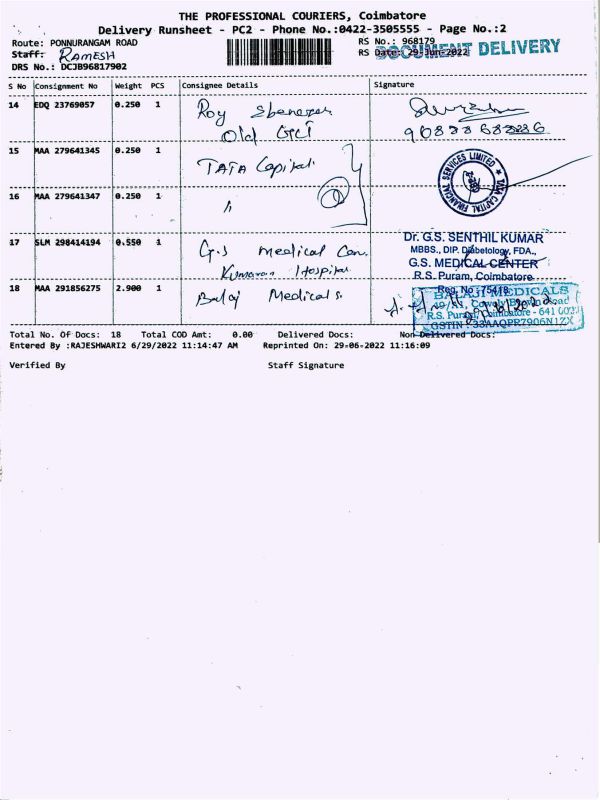 THE PROFESSIONAL COURIERS, Coimbatore
Delivery Runsheet - PC2 - Phone No.:0422-3505555 - Page No.:2
Route: PONNURANGAM ROAD
RS No.: 968179
Staff: RAMESH
RS Date: 29-Jun-2022
DOCUMENT DELIVERY
DRS No.: DCJB96817902
S No Consignment No Weight PCS Consignee Details Signature
14 EDQ 23769057 0.250 1 Roy Ebenezer
Old GCT
15 MAA 279641345 0.250 1 TATA Capital
FINANCIAL SERVICES LIMITED ★ TATA CAPITAL
16 MAA 279641347 0.250 1 "
17 SLM 298414194 0.550 1 G.S Medical Cen.
Kumaran Hospital
Dr. G.S. SENTHIL KUMAR
MBBS., DIP. Diabetology, FDA.,
G.S. MEDICAL CENTER
R.S. Puram, Coimbatore
Reg. No : 75418
18 MAA 291856275 2.900 1 Balaj Medicals
BALAJI MEDICALS
R.S. Puram, Coimbatore - 641 002
GSTIN : 33AAQPR7906N1ZX
Total No. Of Docs: 18 Total COD Amt: 0.00 Delivered Docs: Non-Delivered Docs:
Entered By :RAJESHWARI2 6/29/2022 11:14:47 AM Reprinted On: 29-06-2022 11:16:09
Verified By Staff Signature